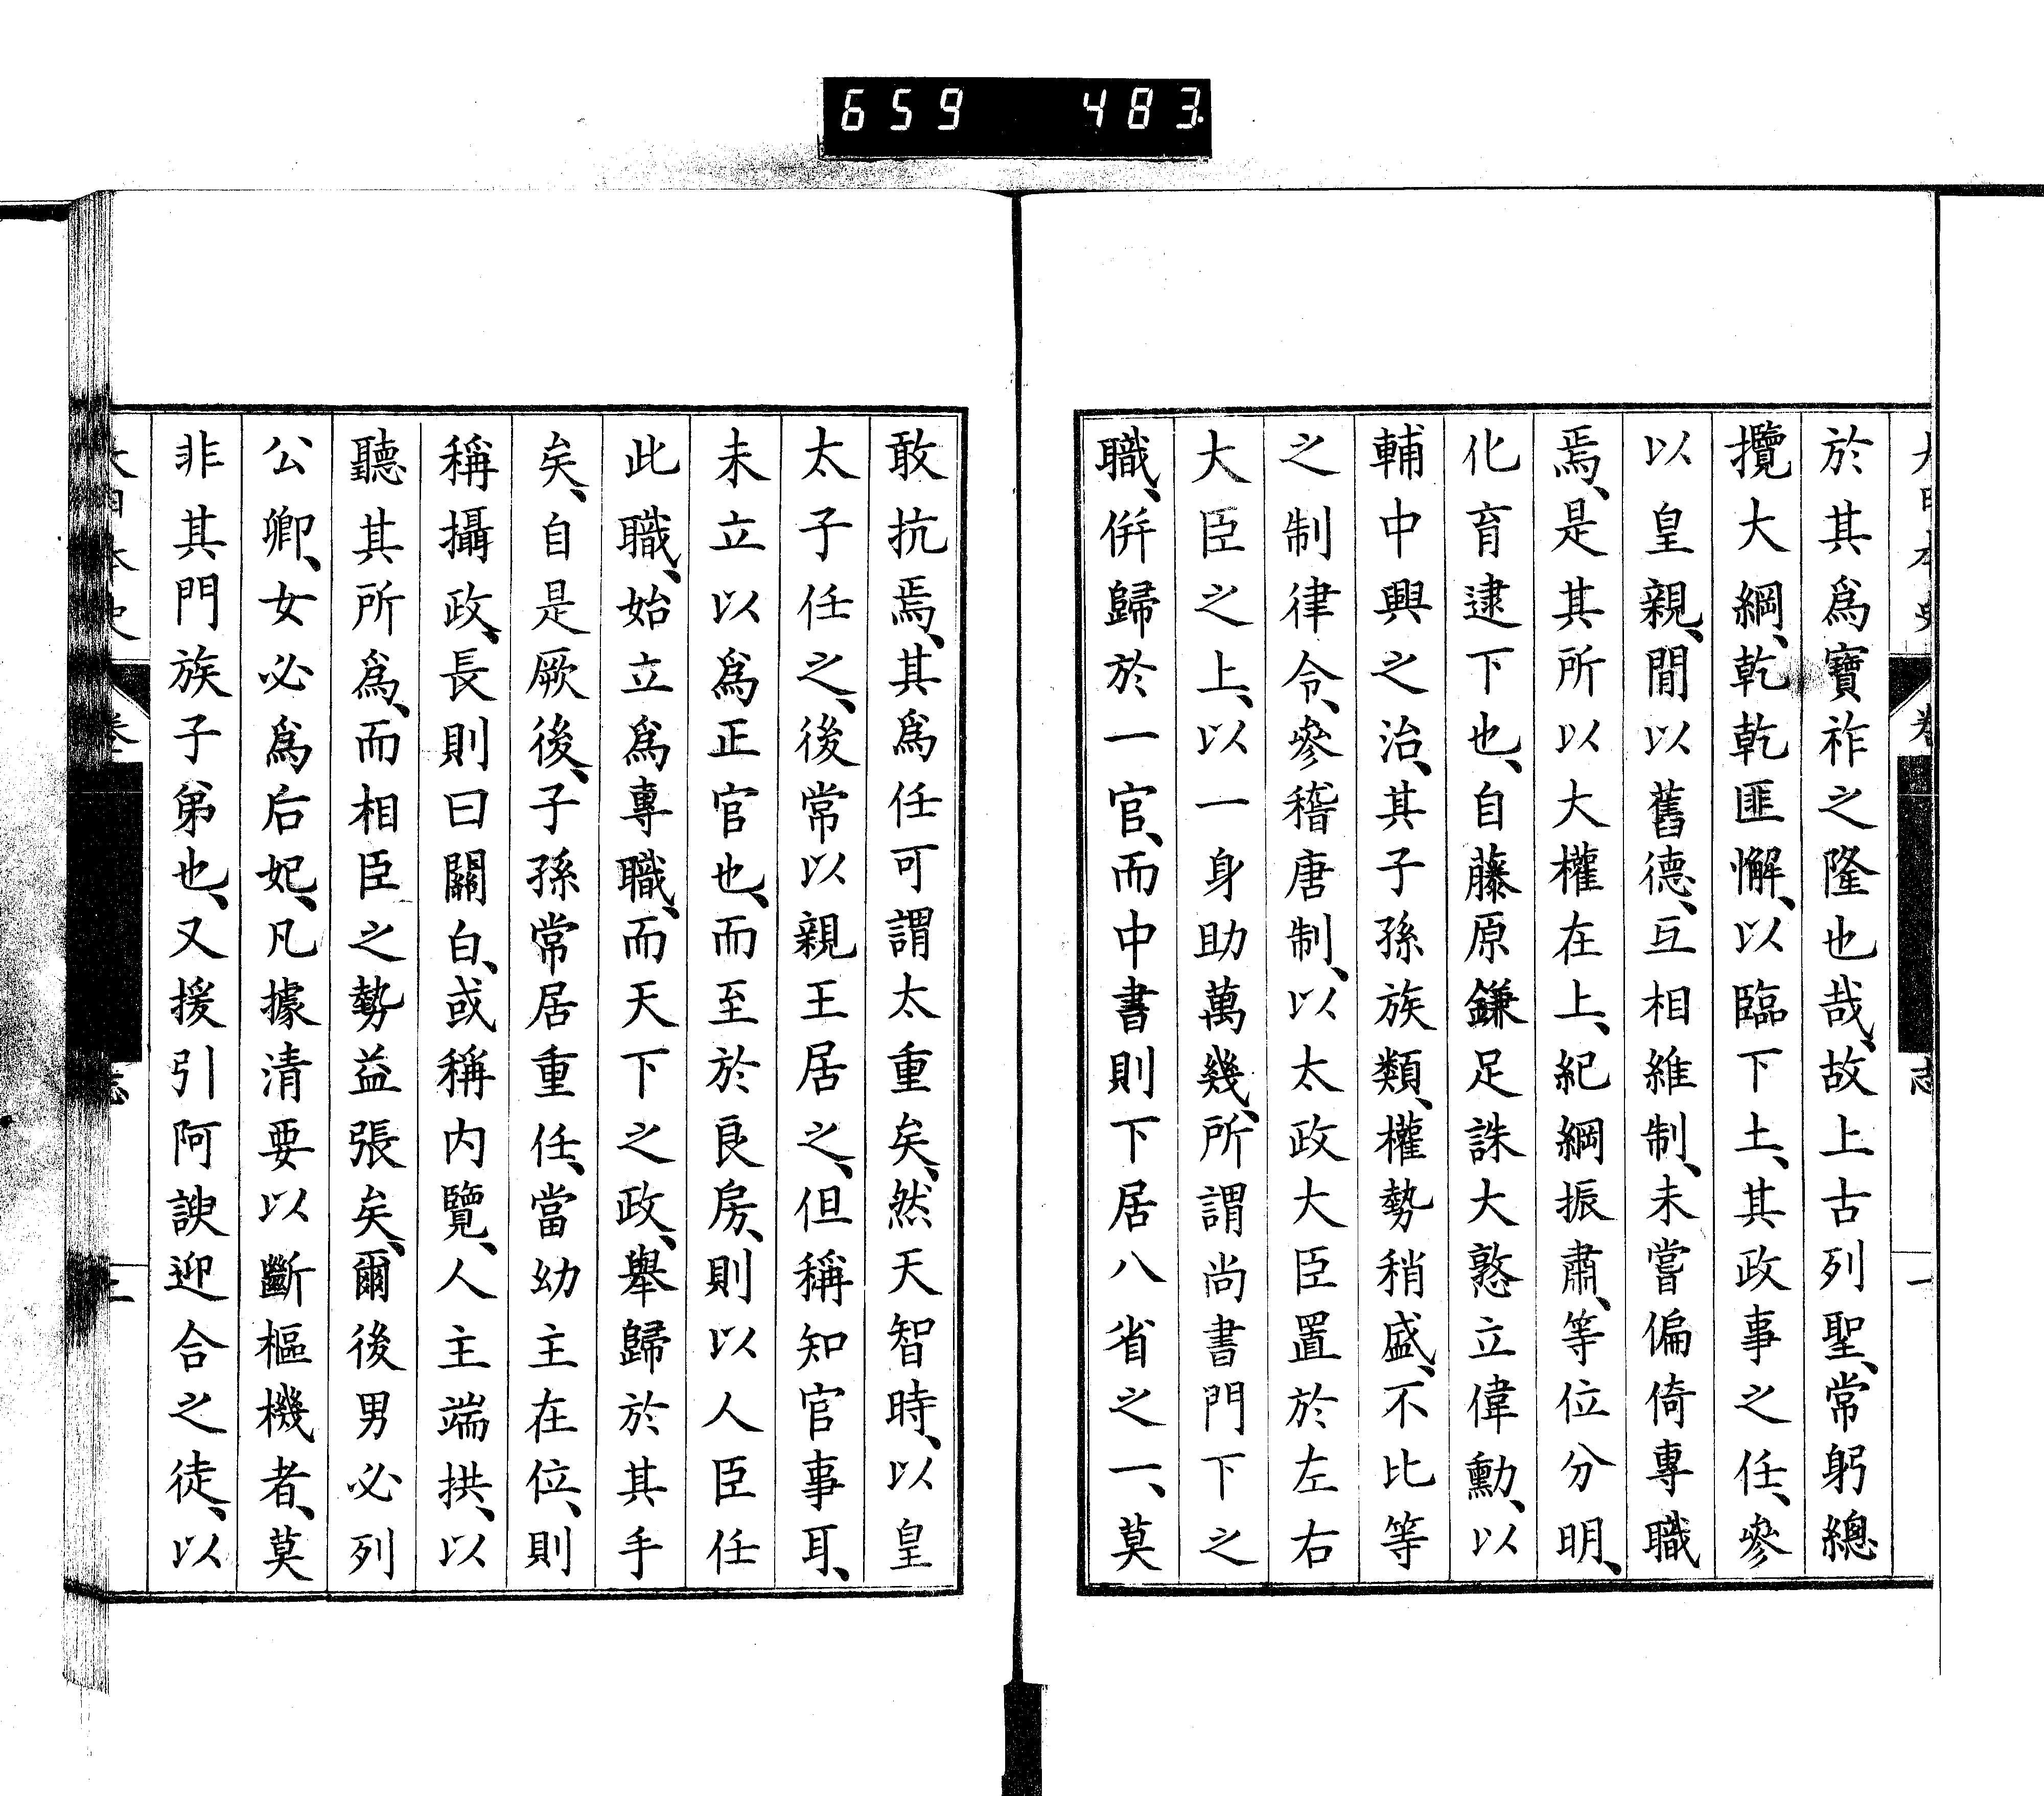 659 483
於其爲寶祚之隆也哉、故上古列聖、常躬總
攬大綱、乾乾匪懈、以臨下土、其政事之任、參
以皇親、閒以舊德、互相維制、未嘗偏倚專職
焉、是其所以大權在上、紀綱振肅、等位分明、
化育逮下也、自藤原鎌足誅大憝立偉勳、以
輔中興之治、其子孫族類、權勢稍盛、不比等
之制律令、參稽唐制、以太政大臣置於左右
大臣之上、以一身助萬幾、所謂尚書門下之
職、併歸於一官、而中書則下居八省之一、莫
敢抗焉、其爲任可謂太重矣、然天智時、以皇
太子任之、後常以親王居之、但稱知官事耳、
未立以爲正官也、而至於良房、則以人臣任
此職、始立爲專職、而天下之政、舉歸於其手
矣、自是厥後、子孫常居重任、當幼主在位、則
稱攝政、長則曰關白、或稱内覽、人主端拱、以
聽其所爲、而相臣之勢益張矣、爾後男必列
公卿、女必爲后妃、凡據清要以斷樞機者、莫
非其門族子弟也、又援引阿諛迎合之徒、以